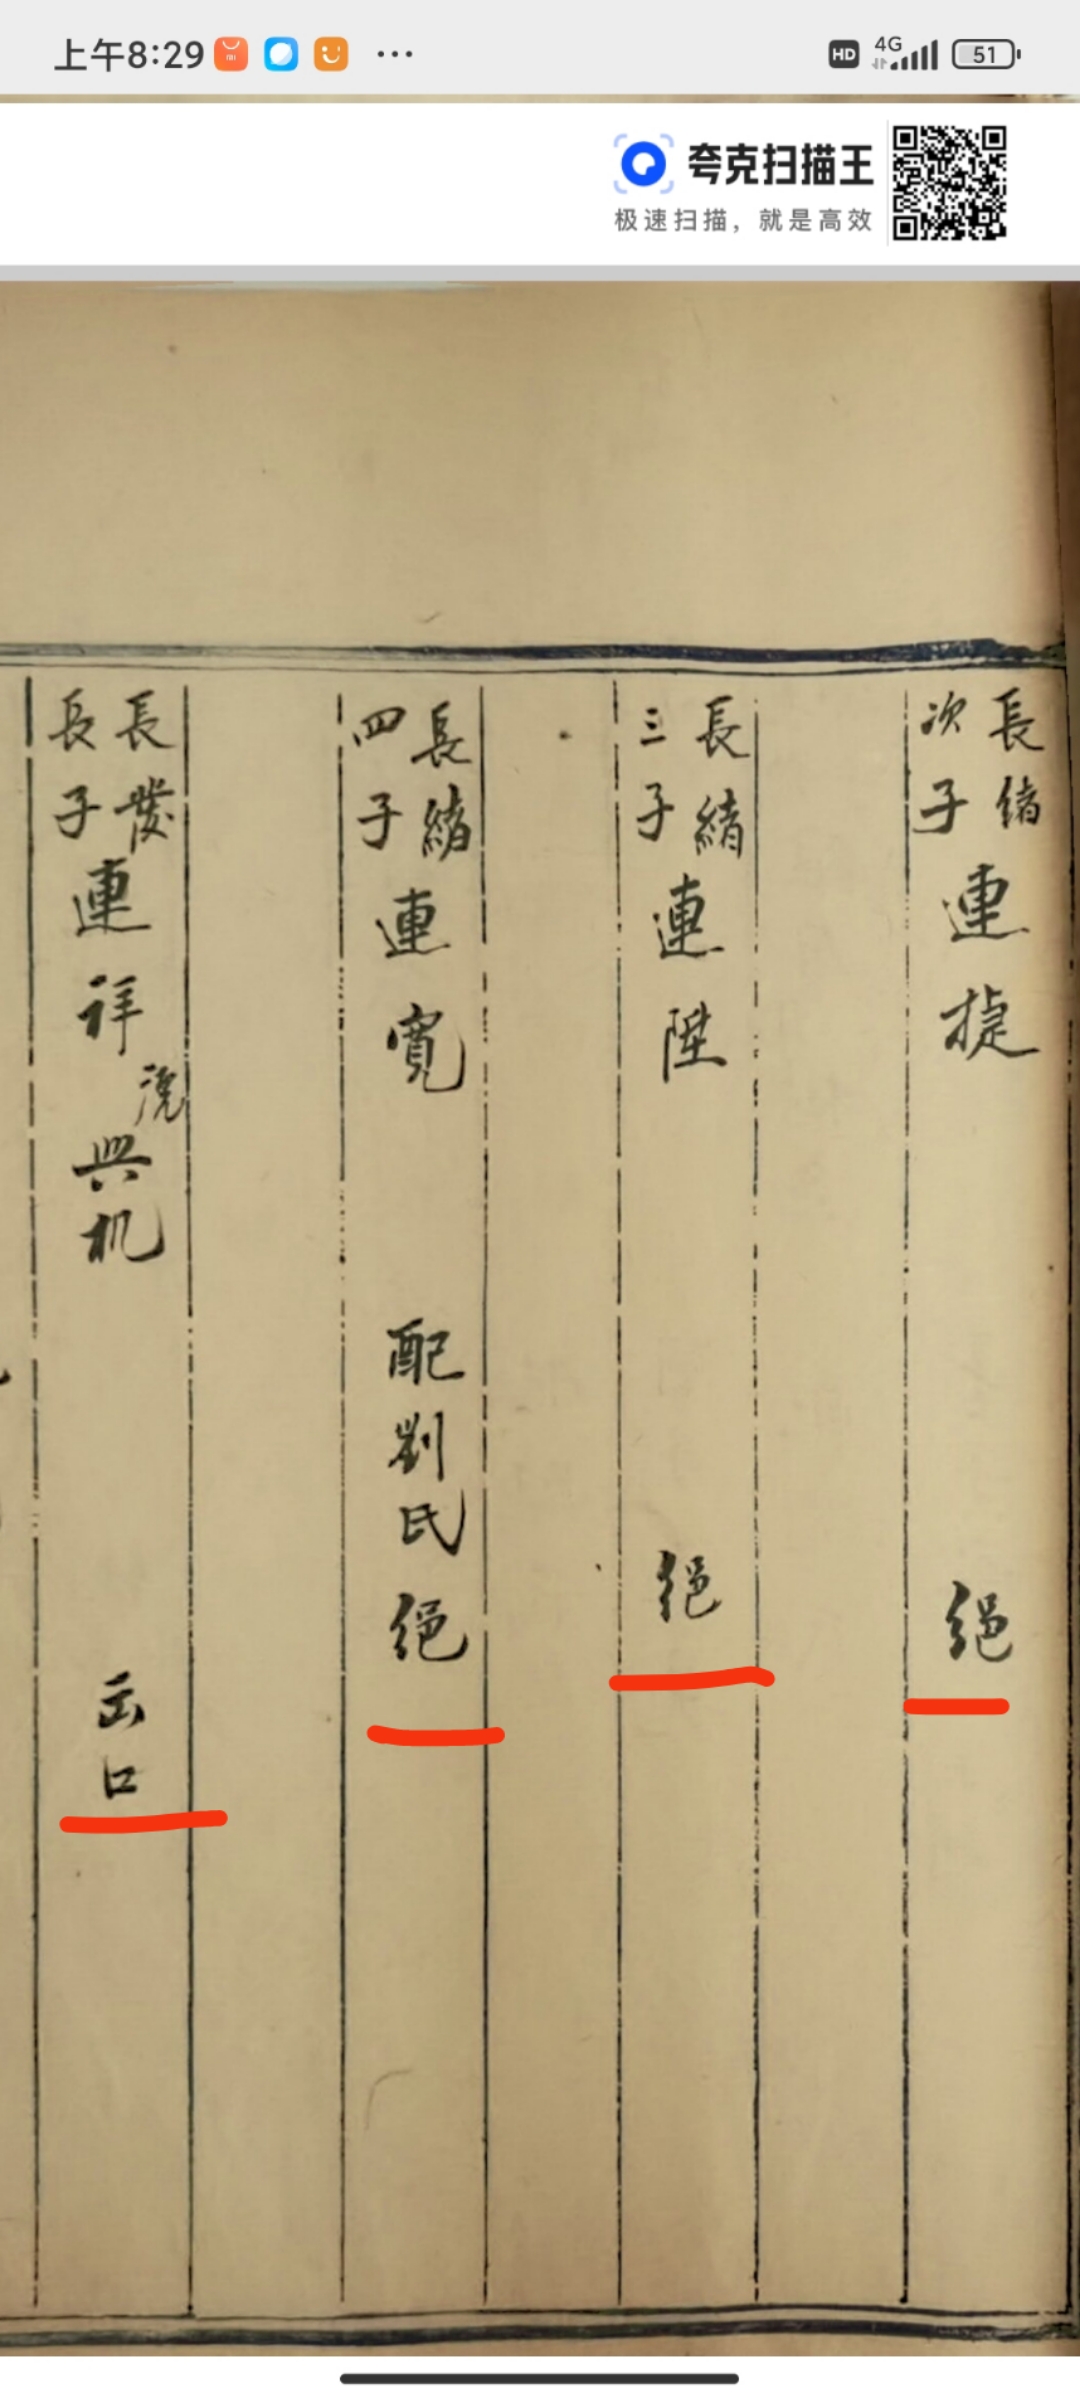 上午8:29
HD 4G 51
夸克扫描王
极速扫描，就是高效
長緒
次子
連捷
絕
長緒
三子
連陞
絕
長緒
四子
連寬
配劉氏
絕
長發
長子
連祥
興机
出口